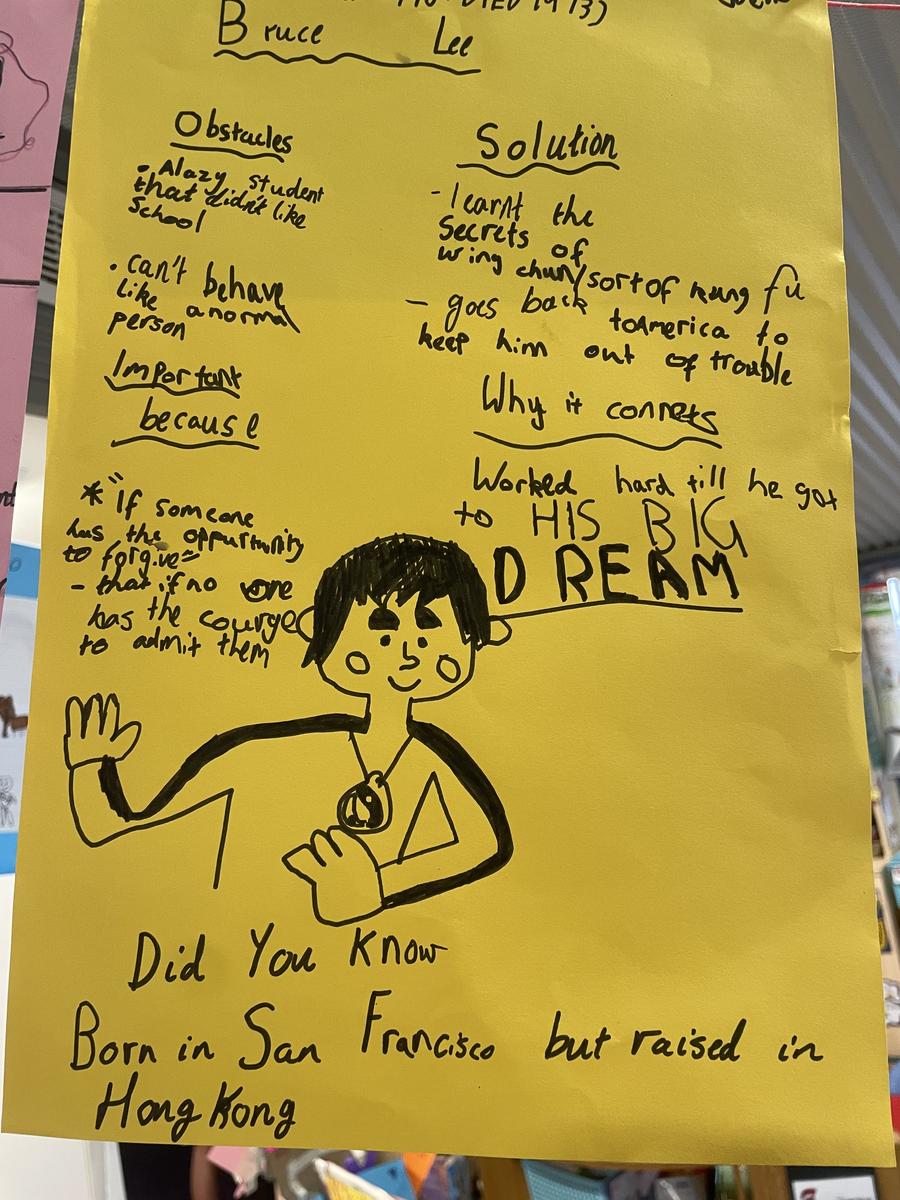 DIED 1973)
Bruce Lee
Obstacles
• A lazy student
that didn't like
School
• can't behave
like a normal
person
Important
because
* "If someone
has the oppurtunity
to forgive"
- that if no one
has the courge
to admit them
Solution
- learnt the
Secrets of
wing chun/sort of kung fu
- goes back to America to
keep him out of trouble
Why it connects
Worked hard till he got
to HIS BIG
DREAM
Did You Know
Born in San Francisco but raised in
Hong Kong